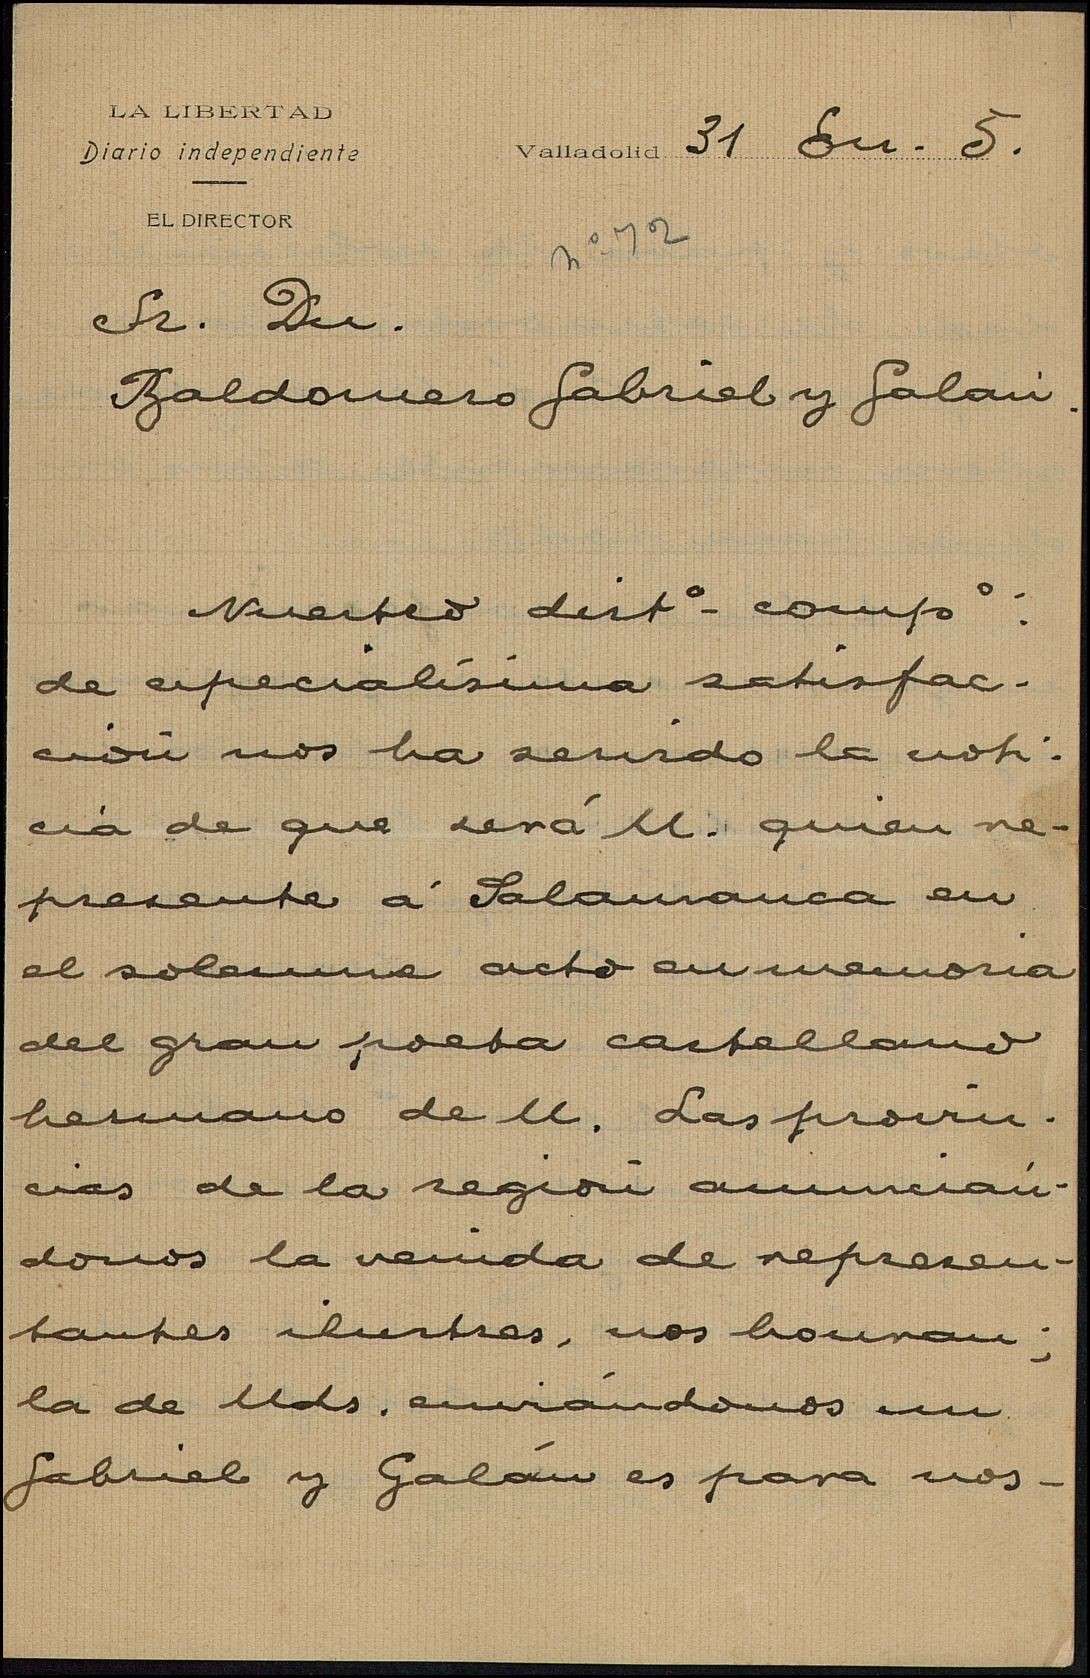 LA LIBERTAD
Diario independiente
EL DIRECTOR
Valladolid 31 En. 5.
nº 72
Sr. Dn.
Baldomero Gabriel y Galán.
Nuestro distº. compº:
de especialísima satisfac-
ción nos ha servido la noti-
cia de que será U. quien re-
presente á Salamanca en
el solemne acto en memoria
del gran poeta castellano
hermano de U. Las provin-
cias de la región anuncián-
donos la venida de represen-
tantes ilustres, nos honran;
la de Uds. enviándonos un
Gabriel y Galán es para nos-